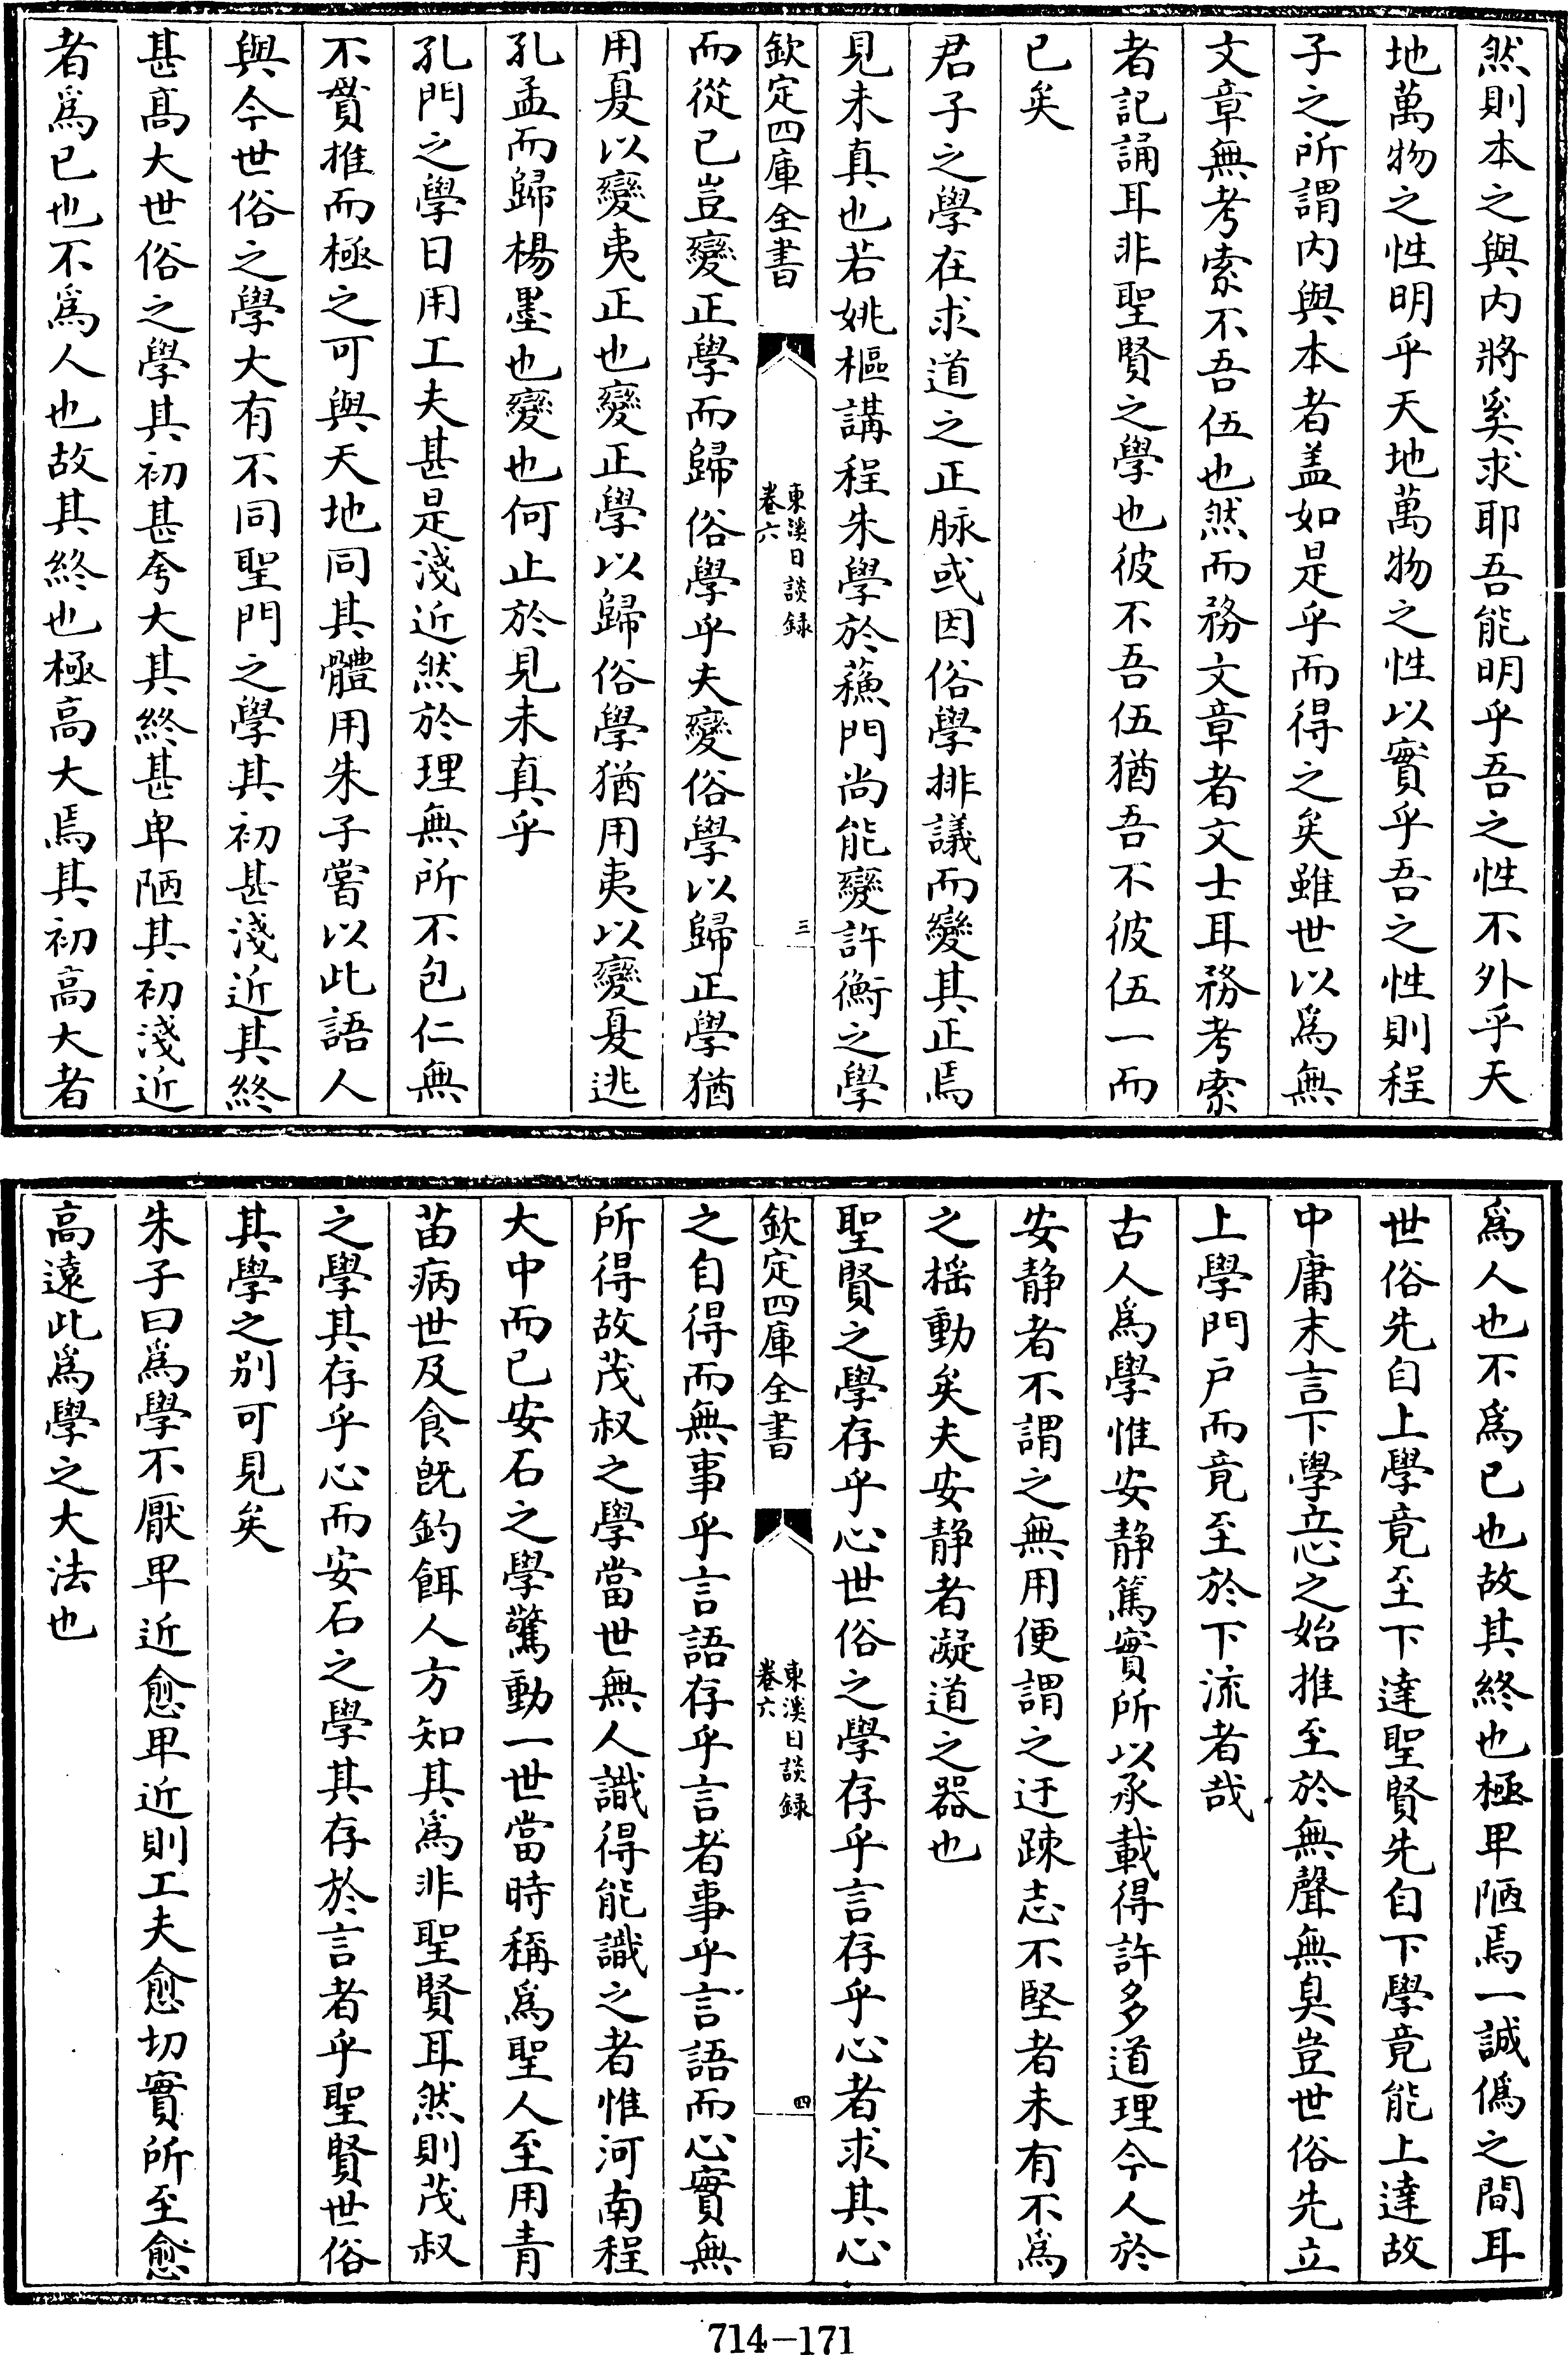 然則本之與内將奚求耶吾能明乎吾之性不外乎天
地萬物之性明乎天地萬物之性以實乎吾之性則程
子之所謂内與本者盖如是乎而得之矣雖世以爲無
文章無考索不吾伍也然而務文章者文士耳務考索
者記誦耳非聖賢之學也彼不吾伍猶吾不彼伍一而
已矣
君子之學在求道之正脉或因俗學排議而變其正焉
見未真也若姚樞講程朱學於蘓門尚能變許衡之學
欽定四庫全書
東溪日談録
卷六
三
而從已豈變正學而歸俗學乎夫變俗學以歸正學猶
用夏以變夷正也變正學以歸俗學猶用夷以變夏逃
孔孟而歸楊墨也變也何止於見未真乎
孔門之學日用工夫甚是淺近然於理無所不包仁無
不貫推而極之可與天地同其體用朱子嘗以此語人
與今世俗之學大有不同聖門之學其初甚淺近其終
甚髙大世俗之學其初甚夸大其終甚卑陋其初淺近
者爲已也不爲人也故其終也極高大焉其初高大者
爲人也不爲已也故其終也極卑陋焉一誠僞之間耳
世俗先自上學竟至下達聖賢先自下學竟能上達故
中庸末言下學立心之始推至於無聲無臭豈世俗先立
上學門户而竟至於下流者哉
古人爲學惟安静篤實所以承載得許多道理今人於
安静者不謂之無用便謂之迂踈志不堅者未有不爲
之揺動矣夫安静者凝道之器也
聖賢之學存乎心世俗之學存乎言存乎心者求其心
欽定四庫全書
東溪日談録
卷六
四
之自得而無事乎言語存乎言者事乎言語而心實無
所得故茂叔之學當世無人識得能識之者惟河南程
大中而已安石之學驚動一世當時稱爲聖人至用青
苗病世及食既釣餌人方知其爲非聖賢耳然則茂叔
之學其存乎心而安石之學其存於言者乎聖賢世俗
其學之别可見矣
朱子曰爲學不厭卑近愈卑近則工夫愈切實所至愈
高遠此爲學之大法也
714-171